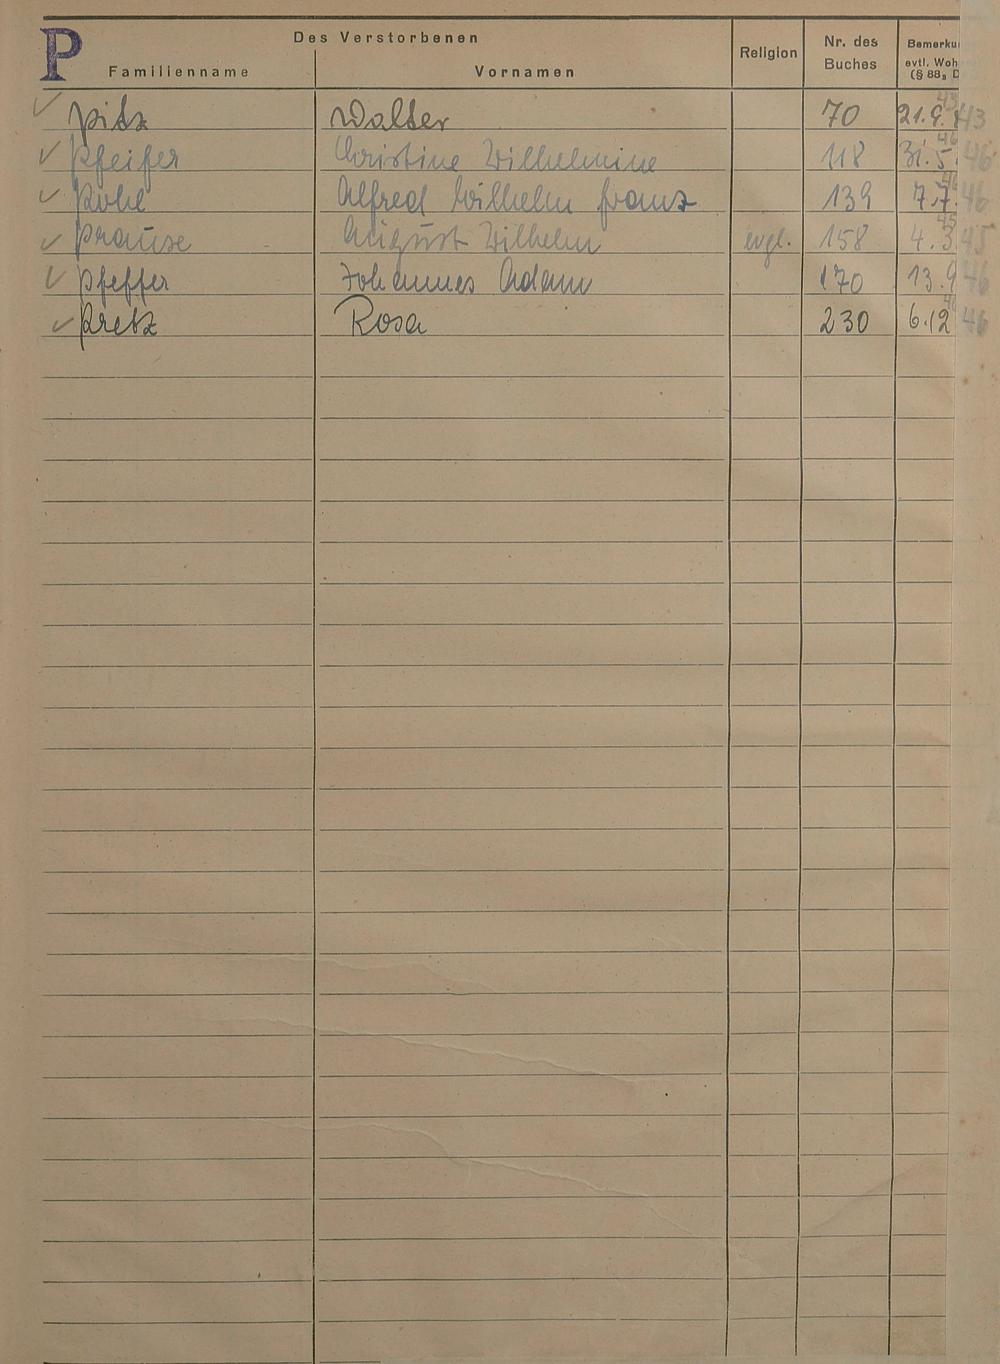 P
Des Verstorbenen
Familienname Vornamen Religion Nr. des Buches Bemerku evtl. Woh (§ 88, D
Pitz Walter 70 21.9. 43 43
Pfeifer Christine Wilhelmine 118 31.5. 46 46
Pohl Alfred Wilhelm Franz 139 7.7. 46 46
Prause August Wilhelm evgl. 158 4.3. 45 45
Pfeffer Johannes Adam 170 13.9 46
Pretz Rosa 230 6.12 46 46